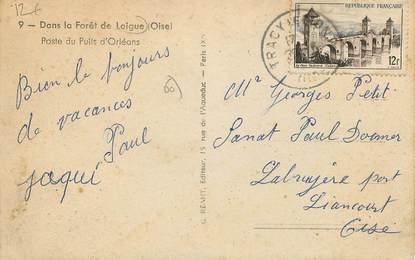 12€
9 - Dans la Forêt de Laigue (Oise)
Poste du Puits d'Orléans
Bien le bonjours
de vacances
Paul
jaqui
60
G. RÉANT, Editeur, 15 rue de l'Aqueduc - Paris
REPUBLIQUE FRANÇAISE
12f
TRACY
Mr Georges Petit
Sanat Paul Doumer
Labruyère par
Liancourt
Oise